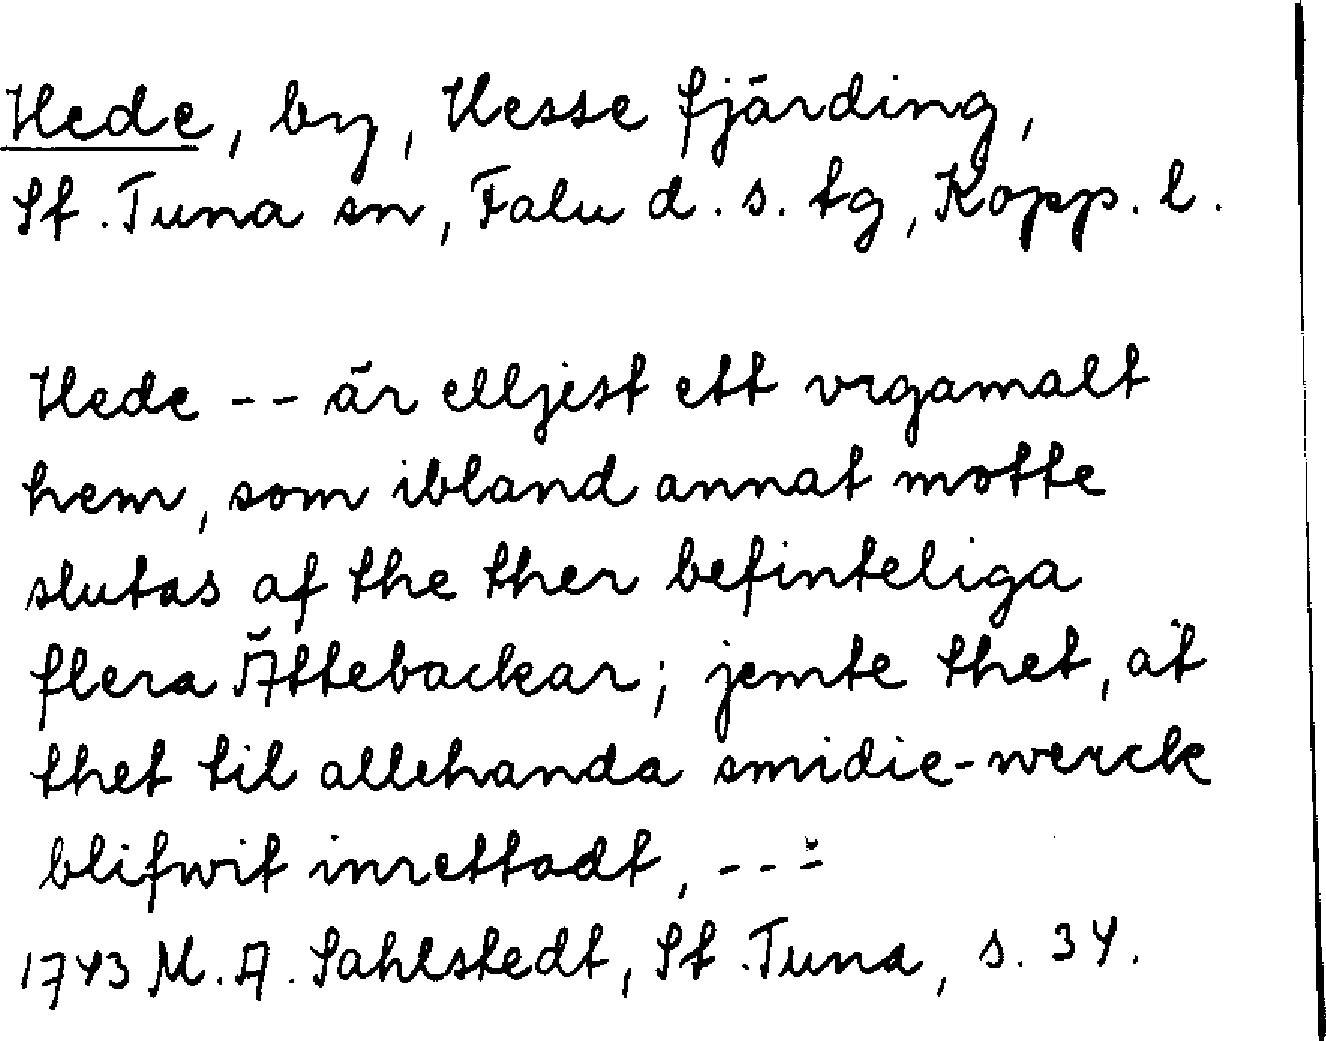 Hede, by, Hesse fjärding,
St. Tuna sn, Falu d. s. tg, Kopp. l.
Hede -- är elljest ett vrgamalt
hem, som ibland annat motte
slutas af the ther befinteliga
flera Ättebackar; jemte thet, at
thet til allehanda smidie-werck
blifwit inrettadt, ---
1743 M. A. Sahlstedt, St. Tuna, s. 34.